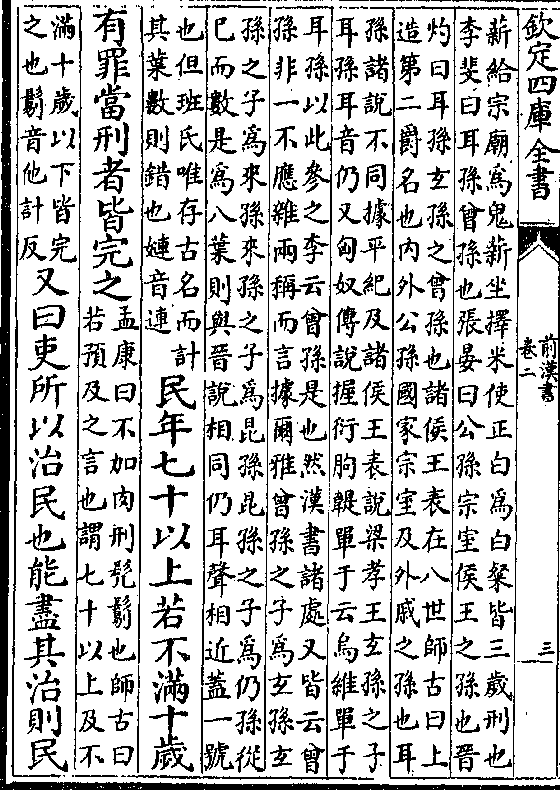 欽定四庫全書
前漢書
卷二
三
薪給宗廟為鬼薪坐擇米使正白為白粲皆三歲刑也
李斐曰耳孫曾孫也張晏曰公孫宗室侯王之孫也晉
灼曰耳孫玄孫之曾孫也諸侯王表在八世師古曰上
造第二爵名也內外公孫國家宗室及外戚之孫也耳
孫諸說不同據平紀及諸侯王表說梁孝王玄孫之子
耳孫耳音仍又匈奴傳說握衍朐鞮單于云烏維單于
耳孫以此參之李云曾孫是也然漢書諸處又皆云曾
孫非一不應雜兩稱而言據爾雅曾孫之子為玄孫玄
孫之子為來孫來孫之子為昆孫昆孫之子為仍孫從
已而數是為八葉則與晉說相同仍耳聲相近蓋一號
也但班氏唯存古名而計
其葉數則錯也㜻音連
民年七十以上若不滿十歲
有罪當刑者皆完之
孟康曰不加肉刑髡鬄也師古曰
若預及之言也謂七十以上及不
滿十歲以下皆完
之也鬄音他計反
又曰吏所以治民也能盡其治則民